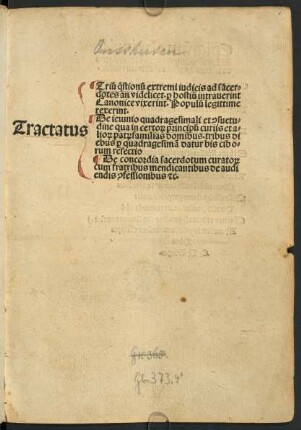 Triū q̄stionū extremi iudicis ad sacer-
dotes an videlicet. p hostiū intrauerint
Canonice vixerint. Populū legittime
rexerint.
Tractatus
De ieiunio quadragesimali et ɔsuetu-
dine qua in certorū principū curiis et a-
liorū patrūfamilias domibus. tribus di
ebus p quadragesimā datur bis cibo-
rum refectio
De concordia sacerdotum curatorū
cum fratribus mendicantibus de audi
endis ɔfessionibus ⁊c.